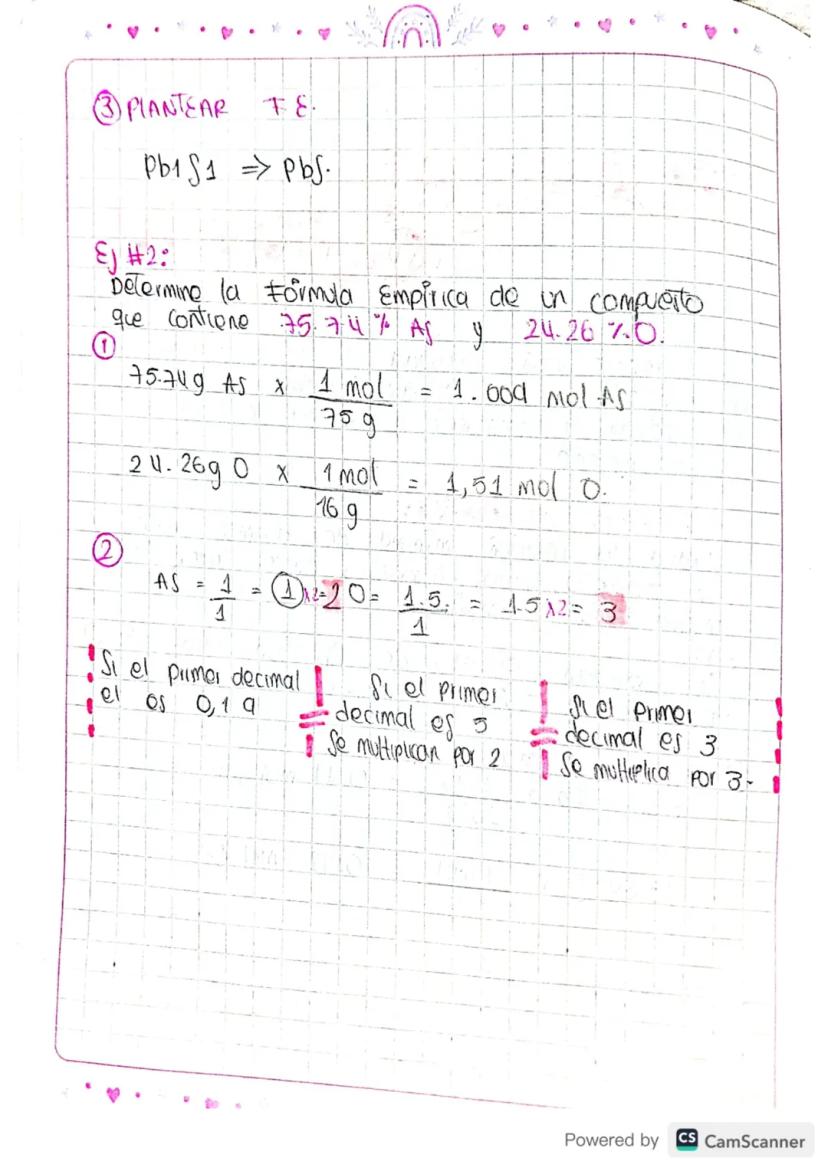 ③ PlANTEAR F E.
Pb1 S1 => PbS.
Ej #2:
Determine la Fórmula Empírica de un compuesto
que contiene 75.74 % AS y 24.26 % O.
①
75.74g AS x 1 mol / 75 g = 1.009 mol AS
24.26g O x 1 mol / 16 g = 1,51 mol O.
②
AS = 1/1 = ① x2=2 O = 1.5./1 = 1.5 x2= 3
Si el primer decimal
el es 0,1 9
Si el primer
decimal es 5
Se multiplican por 2
Si el primer
decimal es 3
Se multiplica por 3-
Powered by CS CamScanner